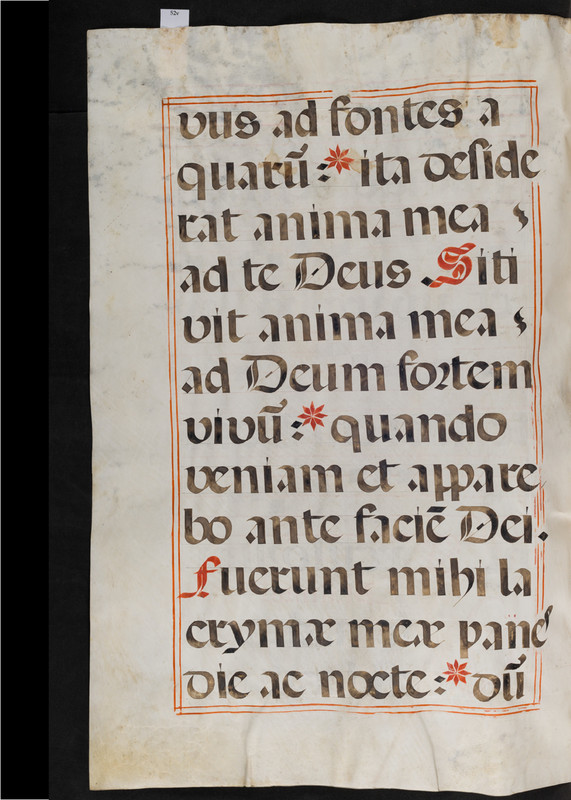 52v
vus ad fontes a
quarũ : * ita deside
rat anima mea
ad te Deus Siti
vit anima mea
ad Deum fortem
vivũ : * quando
veniam et appare
bo ante faciẽ Dei.
fuerunt mihi la
crymæ meæ panes
die ac nocte : * dũ